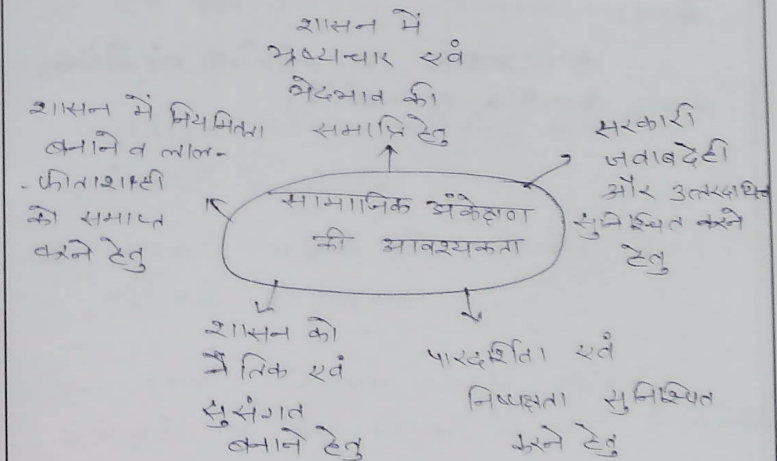 शासन में
भ्रष्टाचार एवं
भेदभाव की
समाप्ति हेतु
शासन में नियमितता
बनाने व लाल-
-फीताशाही
को समाप्त
करने हेतु
सरकारी
जवाबदेही
और उत्तरदायित्व
सुनिश्चित करने
हेतु
सामाजिक अंकेक्षण
की आवश्यकता
शासन को
नैतिक एवं
सुसंगत
बनाने हेतु
पारदर्शिता एवं
निष्पक्षता सुनिश्चित
करने हेतु